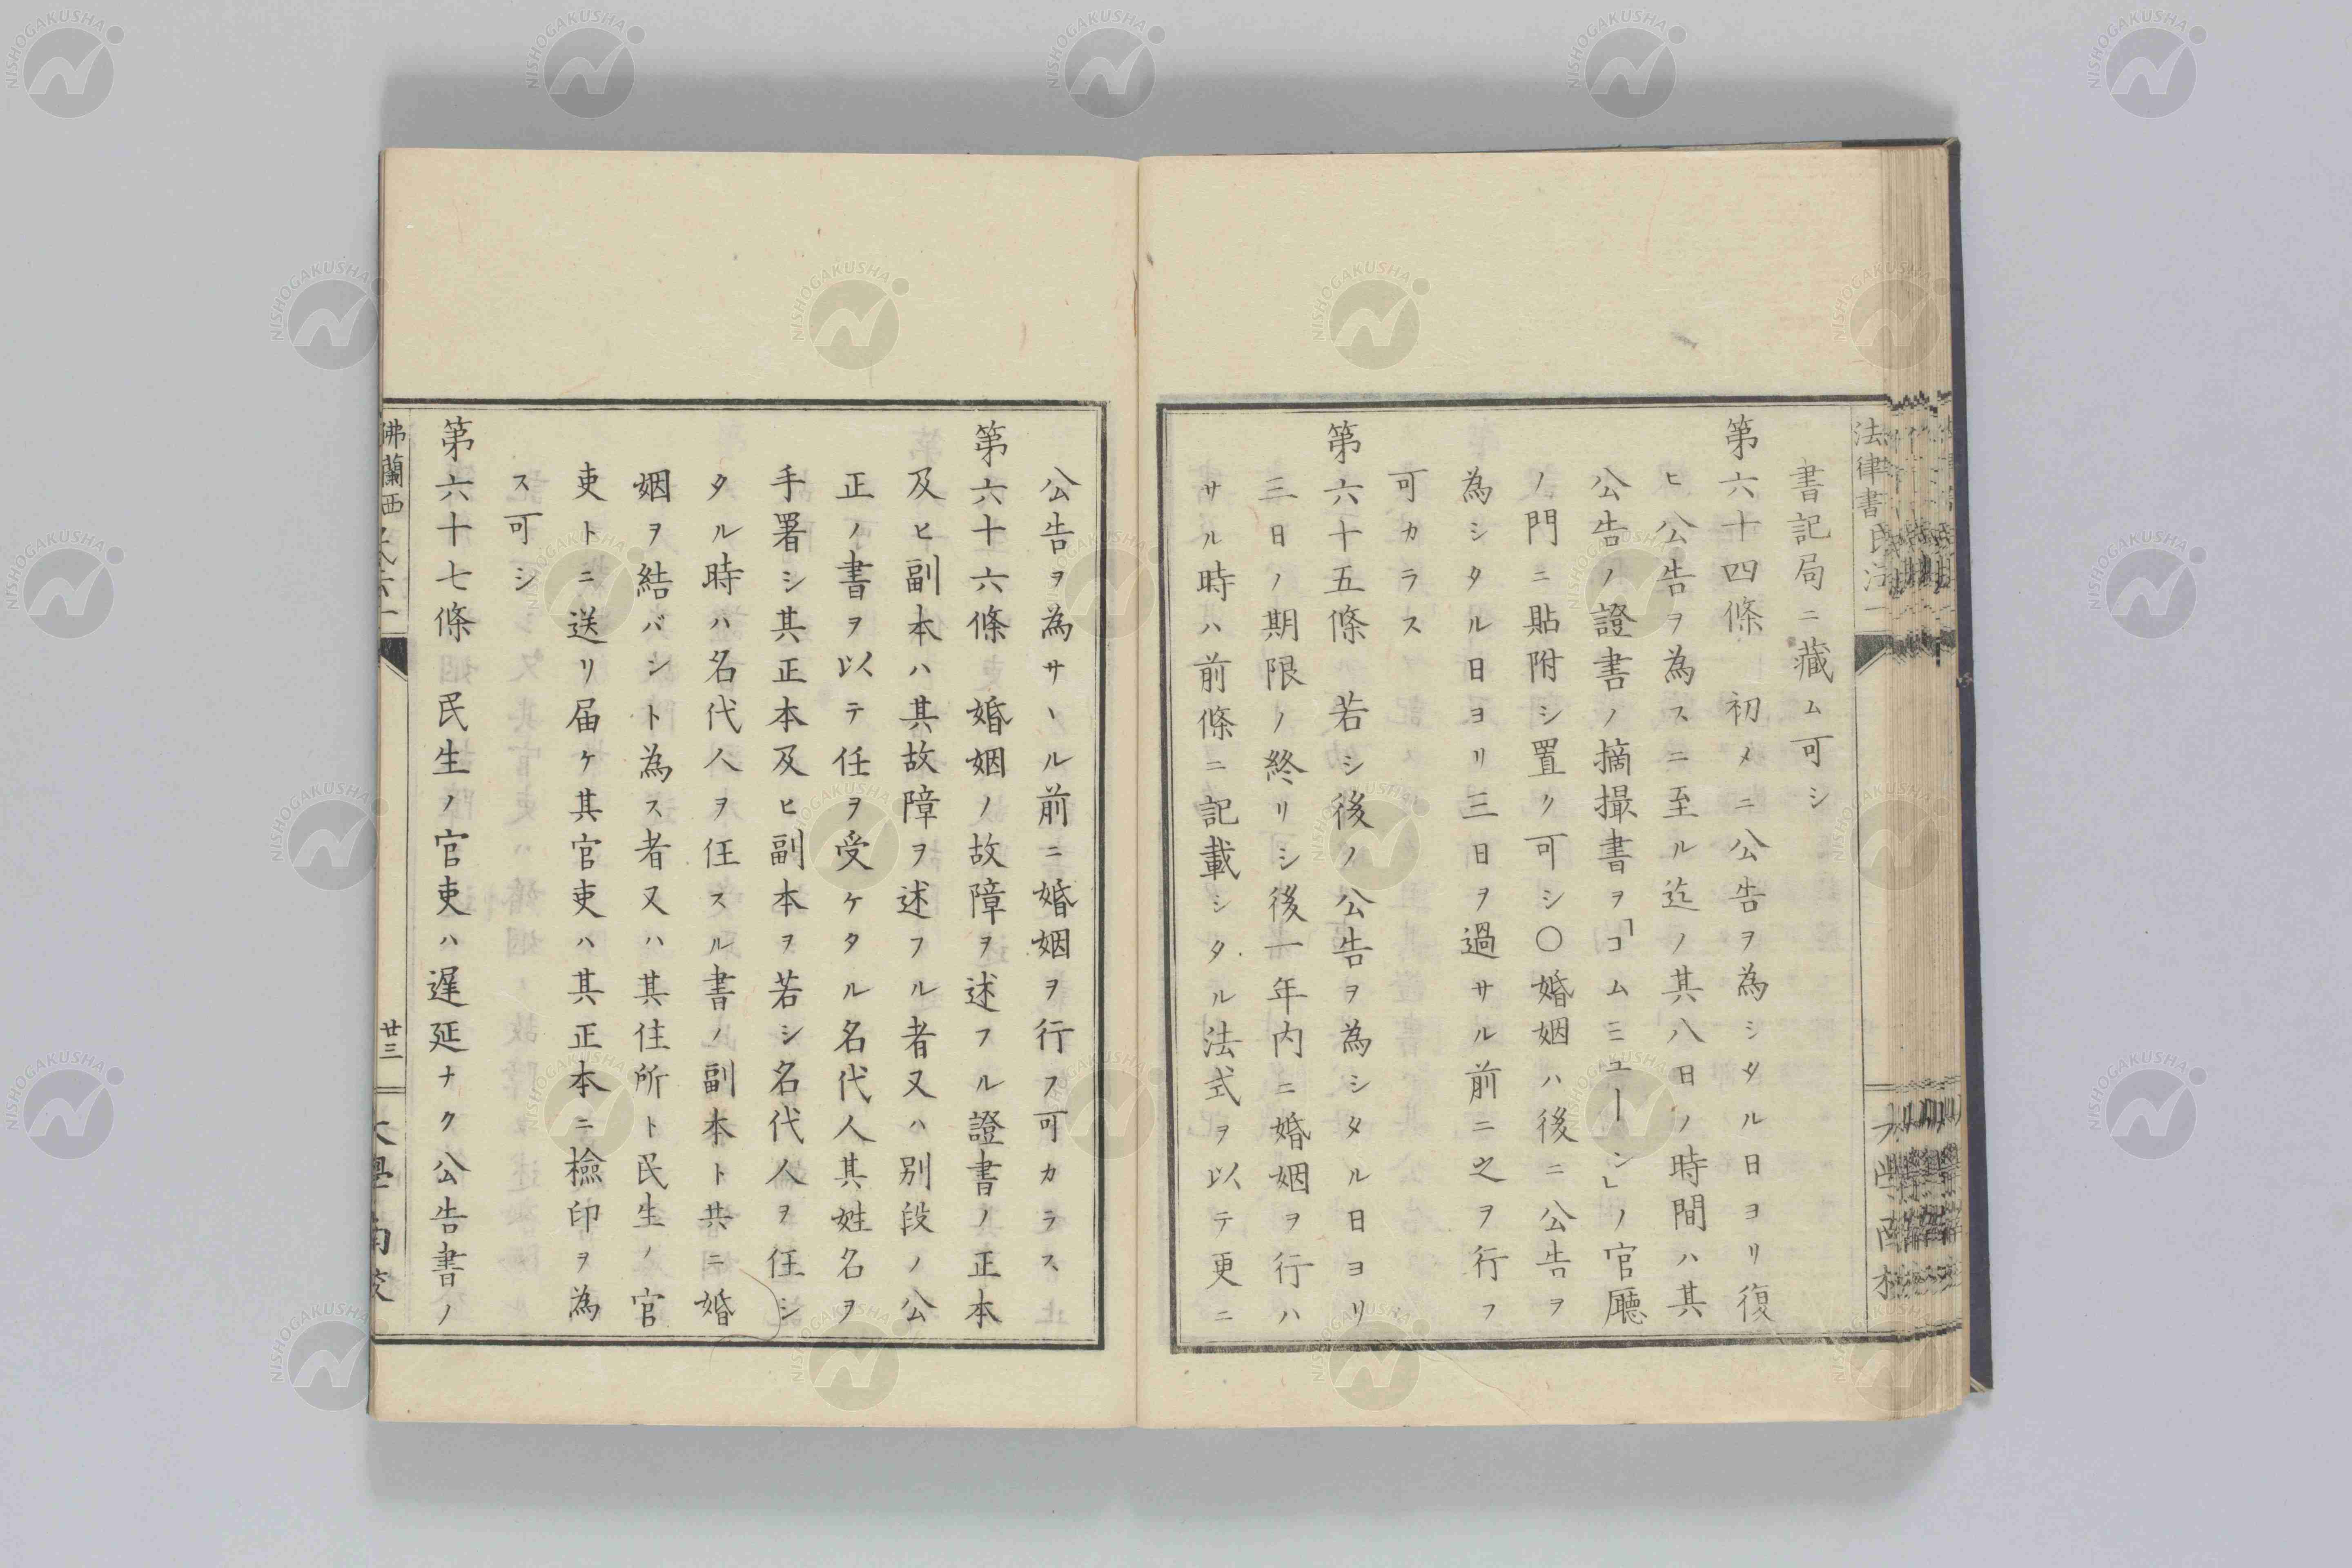 書記局ニ藏ム可シ
第六十四條 初メニ公告ヲ為シタル日ヨリ復
ヒ公告ヲ為スニ至ル迄ノ其八日ノ時間ハ其
公告ノ證書ノ摘撮書ヲ「コムミユーン」ノ官廳
ノ門ニ貼附シ置ク可シ〇婚姻ハ後ニ公告ヲ
為シタル日ヨリ三日ヲ過サル前ニ之ヲ行フ
可カラス
第六十五條 若シ後ノ公告ヲ為シタル日ヨリ
三日ノ期限ノ終リシ後一年内ニ婚姻ヲ行ハ
サル時ハ前條ニ記載シタル法式ヲ以テ更ニ
公告ヲ為サヽル前ニ婚姻ヲ行フ可カラス
第六十六條 婚姻ノ故障ヲ述フル證書ノ正本
及ヒ副本ハ其故障ヲ述フル者又ハ別段ノ公
正ノ書ヲ以テ任ヲ受ケタル名代人其姓名ヲ
手署シ其正本及ヒ副本ヲ若シ名代人ヲ任シ
タル時ハ名代人ヲ任スル書ノ副本ト共ニ婚
姻ヲ結バシト為ス者又ハ其住所ト民生ノ官
吏トニ送リ届ケ其官吏ハ其正本ニ檢印ヲ為
ス可シ
第六十七條 民生ノ官吏ハ遅延ナク公告書ノ
法律書
佛蘭西
廿三
大學南校
NISHOGAKUSHA